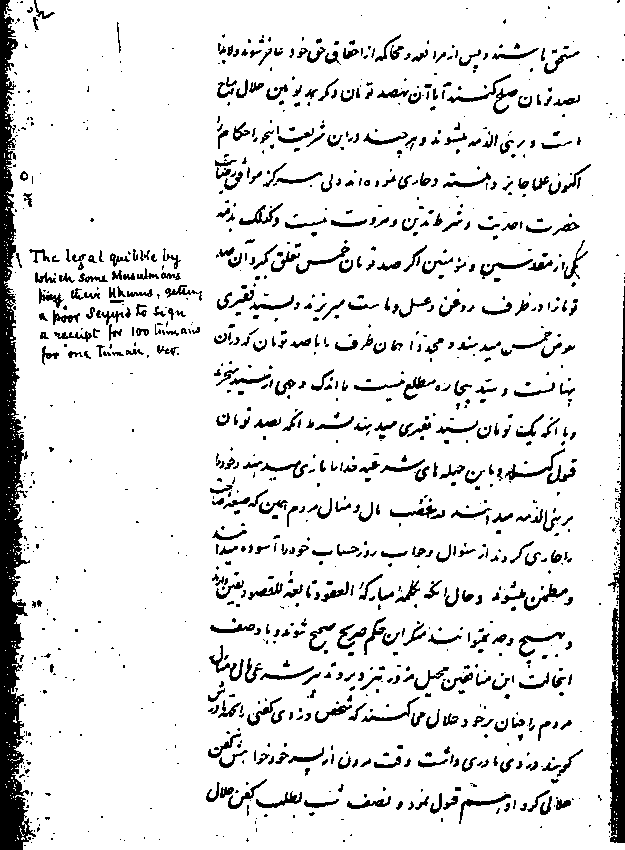 مستحق باشند و پس از مرافعه و محاکمه از احقاق حق خود عاجز شوند و لابداً
بصد تومان صلح کنند آیا آن نهصد تومان دیگر بهر یومین حلال و مباح
است و بریئ الذمه میشوند و هر چند در این شریعت اینجور احکام را
اکنون علما جایز دانسته و جاری نموده اند ولی هرگز موافق رضایت
حضرت احدیت و شرط تدین و مروت نیست و کذلک بذمه
یکی از مقدسین و مؤمنین اگر صد تومان خمس تعلق گیرد آن صد
تومانرا در ظرف روغن و عسل و ماست میریزند و بسید فقیری
عوض خمس میدهند و مجدداً همان ظرف را با صد تومان که در آن
پنهانست و سید بیچاره مطلع نیست باندک وجهی از سید میخرند
و یا آنکه یک تومان بسید فقیری میدهند بشرط آنکه بصد تومان
قبول کند و باین حیله های شرعیه خدا را بازی میدهند و خود را
بریئ الذمه میدانند در غصب مال و منال مردم همین که صیغه مصالحت
را جاری کردند از سئوال و جواب روز حساب خود را آسوده میدانند
و مطمئن میشوند و حال آنکه بکلمهٔ مبارکهٔ العقود تابعة للقصود یقین دارند
و بهیچ وجه نمیتوانند منکر این حکم صریح صحیح شوند و با وصف
اینحالت این منافقین بحیل مزور تزویر و تدبیر شرعی مال و منال
مردم را چنان بر خود حلال می کنند که شخص دزدی کفنی را
گویند دزدی مادری داشت وقت مردن از پسر خود خواهش کفن
حلالی کرد او هم قبول نمود و نصف شب بطلب کفن حلال
The legal quibble by
which some Musulmáns
pay their Khums, getting
a poor Seyyid to sign
a receipt for 100 túmáns
for one Túmán, &c.